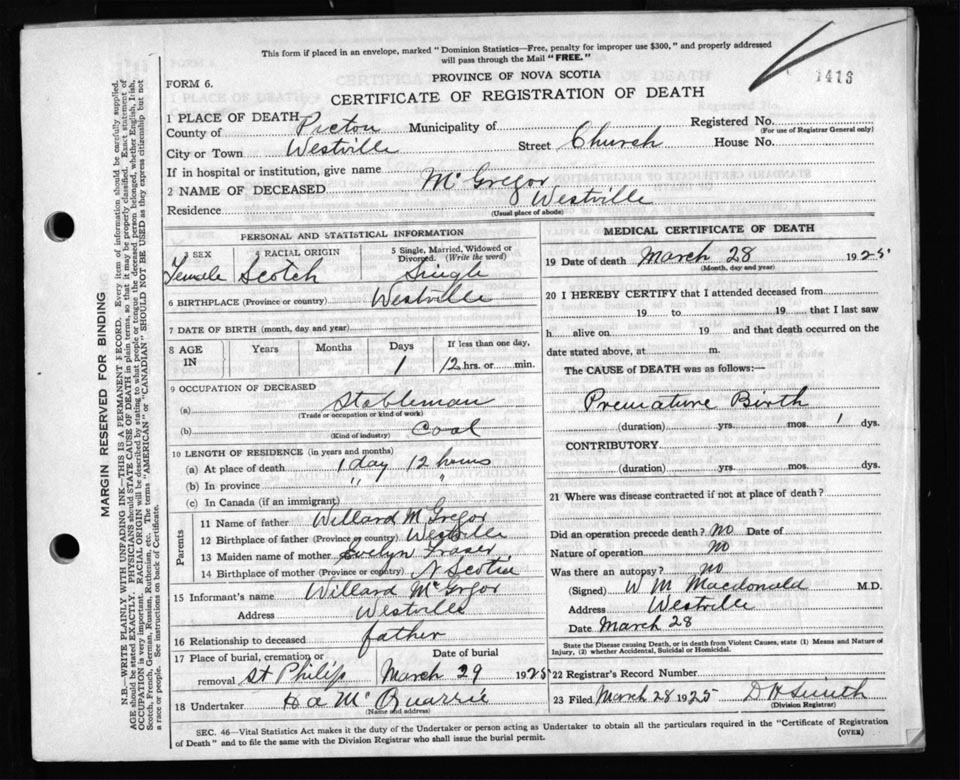 This form if placed in an envelope, marked "Dominion Statistics—Free, penalty for improper use $300," and properly addressed
will pass through the Mail "FREE."
1413
FORM 6.
PROVINCE OF NOVA SCOTIA
CERTIFICATE OF REGISTRATION OF DEATH
1 PLACE OF DEATH
County of Pictou Municipality of Registered No.
(For use of Registrar General only)
City or Town Westville Street Church House No.
If in hospital or institution, give name
2 NAME OF DECEASED McGregor
Residence Westville
(Usual place of abode)
PERSONAL AND STATISTICAL INFORMATION
3 SEX 4 RACIAL ORIGIN 5 Single, Married, Widowed or
Divorced. (Write the word)
Female Scotch Single
6 BIRTHPLACE (Province or country) Westville
7 DATE OF BIRTH (month, day and year)
8 AGE IN Years Months Days If less than one day,
1 12 hrs. or min.
9 OCCUPATION OF DECEASED
(a) Stableman
(Trade or occupation or kind of work)
(b) Coal
(Kind of industry)
10 LENGTH OF RESIDENCE (in years and months)
(a) At place of death 1 day 12 hours
(b) In province " "
(c) In Canada (if an immigrant)
Parents
11 Name of father Willard McGregor
12 Birthplace of father (Province or country) Westville
13 Maiden name of mother Evelyn Fraser
14 Birthplace of mother (Province or country) N Scotia
15 Informant's name Willard McGrgor
Address Westville
16 Relationship to deceased father
17 Place of burial, cremation or removal Date of burial
St Philips March 29 1925
18 Undertaker H a McQuarrie
(Name and address)
MEDICAL CERTIFICATE OF DEATH
19 Date of death March 28 1925
(Month, day and year)
20 I HEREBY CERTIFY that I attended deceased from
19 to 19 that I last saw
h alive on 19 and that death occurred on the
date stated above, at m.
The CAUSE of DEATH was as follows:—
Premature Birth
(duration) yrs. mos. 1 dys.
CONTRIBUTORY
(duration) yrs. mos. dys.
21 Where was disease contracted if not at place of death?
Did an operation precede death? No Date of
Nature of operation No
Was there an autopsy? no
(Signed) W M Macdonald M.D.
Address Westville
Date March 28
State the Disease causing Death, or in death from Violent Causes, state (1) Means and Nature of
Injury, (2) whether Accidental, Suicidal or Homicidal.
22 Registrar's Record Number
23 Filed March 28 1925 D H Smith
(Division Registrar)
SEC. 46—Vital Statistics Act makes it the duty of the Undertaker or person acting as Undertaker to obtain all the particulars required in the "Certificate of Registration
of Death" and to file the same with the Division Registrar who shall issue the burial permit.
(OVER)
MARGIN RESERVED FOR BINDING
N.B.—WRITE PLAINLY WITH UNFADING INK—THIS IS A PERMANENT RECORD. Every item of information should be carefully supplied.
AGE should be stated EXACTLY. PHYSICIANS should STATE CAUSE OF DEATH in plain terms, so that it may be properly classified. Exact statement of
OCCUPATION is very important. RACIAL ORIGIN will be described by stating to what people or tongue the deceased person belonged, whether English, Irish,
Scotch, French, German, Russian, Ruthenian, etc. The terms "AMERICAN" or "CANADIAN" SHOULD NOT BE USED as they express citizenship but not
a race or people. See instructions on back of Certificate.